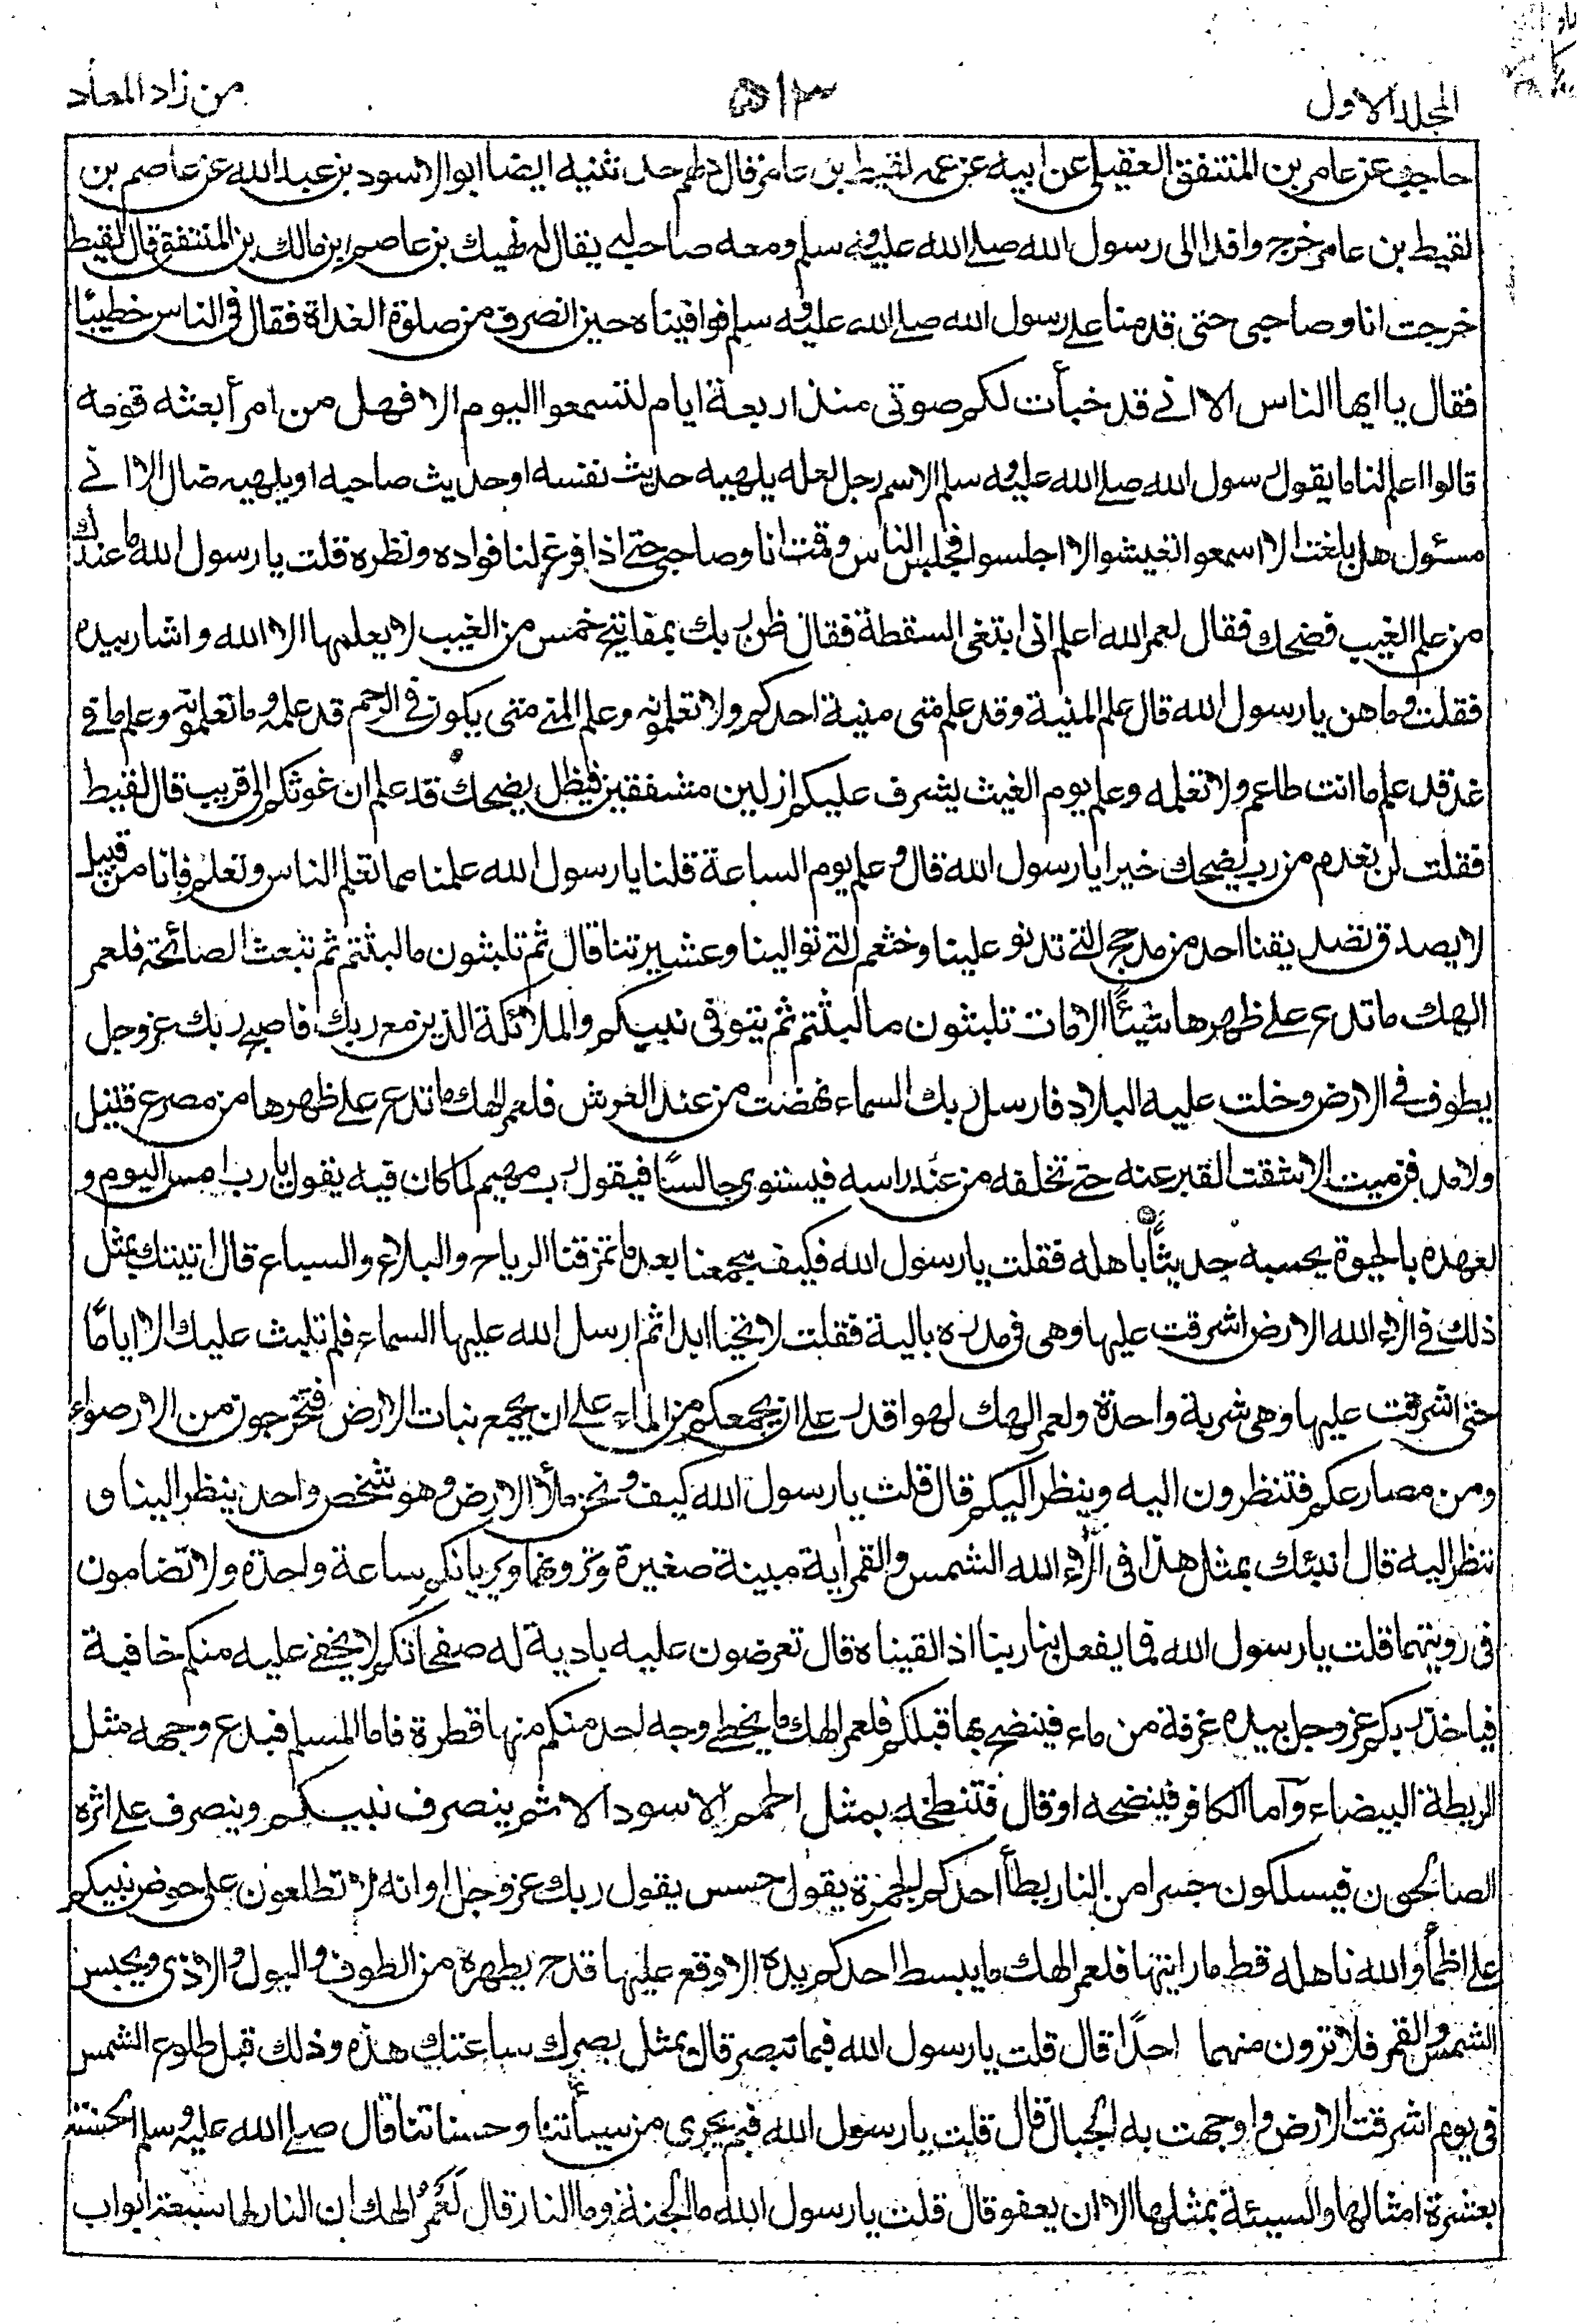 المجلد الاول
٥١٣
من زاد المعاد
حاجب عن عامر بن المنتفق العقيلي عن ابيه عن عمه لقيط بن عامر قال دلهم حدثنيه ايضا ابو الاسود بن عبد الله عن عاصم بن
لقيط بن عامر خرج وافدا الى رسول الله صلى الله عليه وسلم ومعه صاحب له يقال له نهيك بن عاصم ابن مالك بن المنتفق قال لقيط
خرجت انا وصاحبي حتى قدمنا على رسول الله صلى الله عليه وسلم فوافيناه حين انصرف من صلوة الغداة فقال في الناس خطيبًا
فقال يا ايها الناس الا اني قد خبأت لكم صوتي منذ اربعة ايام لتسمعوا اليوم الا فهل من امرأ بعثه قومه
قالوا اعلم لنا ما يقول رسول الله صلى الله عليه وسلم الا ثم رجل لعله يلهيه حديث نفسه او حديث صاحبه او يلهيه ضال الا اني
مسئول هل بلغت الا اسمعوا تعيشوا الا اجلسوا فجلس الناس وقمت انا وصاحبي حتى اذا فرغ لنا فواده ونظره قلت يا رسول الله ما عندك
من علم الغيب فضحك فقال لعمر الله اعلم اني ابتغي السقطة فقال ظن ربك بمفاتيح خمس من الغيب لا يعلمها الا الله واشار بيده
فقلت وما هن يا رسول الله قال علم المنية وقد علم متى منية احدكم ولا تعلمونه وعلم المني متى يكون في الرحم قد علمه وما تعلمونه وعلم ما في
غد قد علم ما انت طاعم ولا تعلمه وعلم يوم الغيث يشرف عليكم ازلين مشفقين فيظل يضحك قد علم ان غوثكم الى قريب قال لقيط
فقلت لن نعدم من رب يضحك خيرا يا رسول الله قال وعلم يوم الساعة قلنا يا رسول الله علمنا مما تعلم الناس وتعلم فانا من قبيل
لا يصدق تصديقنا احد من مذحج التي تدنو علينا وخثعم التي توالينا وعشيرتنا قال ثم تلبثون ما لبثتم ثم تبعث الصائحة فلعمر
الهك ما تدع على ظهرها شيئًا الا مات تلبثون ما لبثتم ثم يتوفى نبيكم والملائكة الذين مع ربك فاصبح ربك عز وجل
يطوف في الارض وخلت عليه البلاد فارسل ربك السماء تهضت من عند العرش فلعمر الهك ما تدع على ظهرها من مصرع قتيل
ولا مدفن ميت الا شقت القبر عنه حتى تخلفه من عند راسه فيستوي جالسًا فيقول رب مهيم لما كان فيه يقول يا رب امس اليوم و
لعهده بالحيوة يحسبه حديثًا باهله فقلت يا رسول الله فكيف يجمعنا بعد ما تمزقنا الرياح والبلاء والسباع قال انبئك بمثل
ذلك في الاء الله الارض اشرقت عليها وهي في مدرة بالية فقلت لا تحيا ابدا ثم ارسل الله عليها السماء فلم تلبث عليك الا ايامًا
حتى اشرقت عليها وهي شربة واحدة ولعمر الهك لهو اقدر على ان يجمعكم من الماء على ان يجمع نبات الارض فتخرجون من الاصواء
ومن مصارعكم فتنظرون اليه وينظر اليكم قال قلت يا رسول الله كيف ونحن ملأ الارض وهو شخص واحد ينظر الينا و
ننظر اليه قال انبئك بمثل هذا في الاء الله الشمس والقمر اية مبينة صغيرة وترونهما ويريانكم ساعة واحدة ولا تضامون
في رويتهما قلت يا رسول الله فما يفعل بنا ربنا اذا لقيناه قال تعرضون عليه بادية له صفحاتكم لا يخفى عليه منكم خافية
فياخذ ربكم عز وجل بيده غرفة من ماء فينضح بها قبلكم فلعمر الهك ما يخطي وجه احد منكم منها قطرة فاما المسلم فيدع وجهه مثل
الريطة البيضاء وآما الكافر فينضحه او قال فتنطخه بمثل الحمم الاسود الا ثم ينصرف نبيكم وينصرف على اثره
الصالحون فيسلكون جسرا من النار يطأ احدكم الجمرة يقول حس يقول ربك عز وجل او انه الا تطلعون على حوض نبيكم
على اظمأ والله ناهله قط ما رايتها فلعمر الهك ما يبسط احد كم يده الا وقع عليها قدح يطهره من الطوف والبول والاذى ويحبس
الشمس والقمر فلا ترون منهما احدًا قال قلت يا رسول الله فبما تبصر قال بمثل بصرك ساعتك هذه وذلك قبل طلوع الشمس
في يوم اشرقت الارض واوجهت به الجبال قال قلت يا رسول الله فبم يجرى من سيأتنا وحسناتنا قال صلى الله عليه وسلم الحسنة
بعشرة امثالها والسيئة بمثلها الا ان يعفو قال قلت يا رسول الله ما الجنة وما النار قال لَعَمْرُ الهك ان النار لها سبعة ابواب